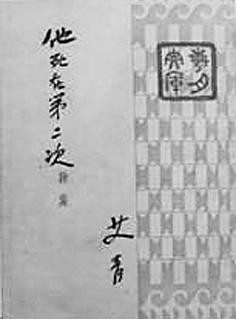 他死在第二次
詩集
艾青